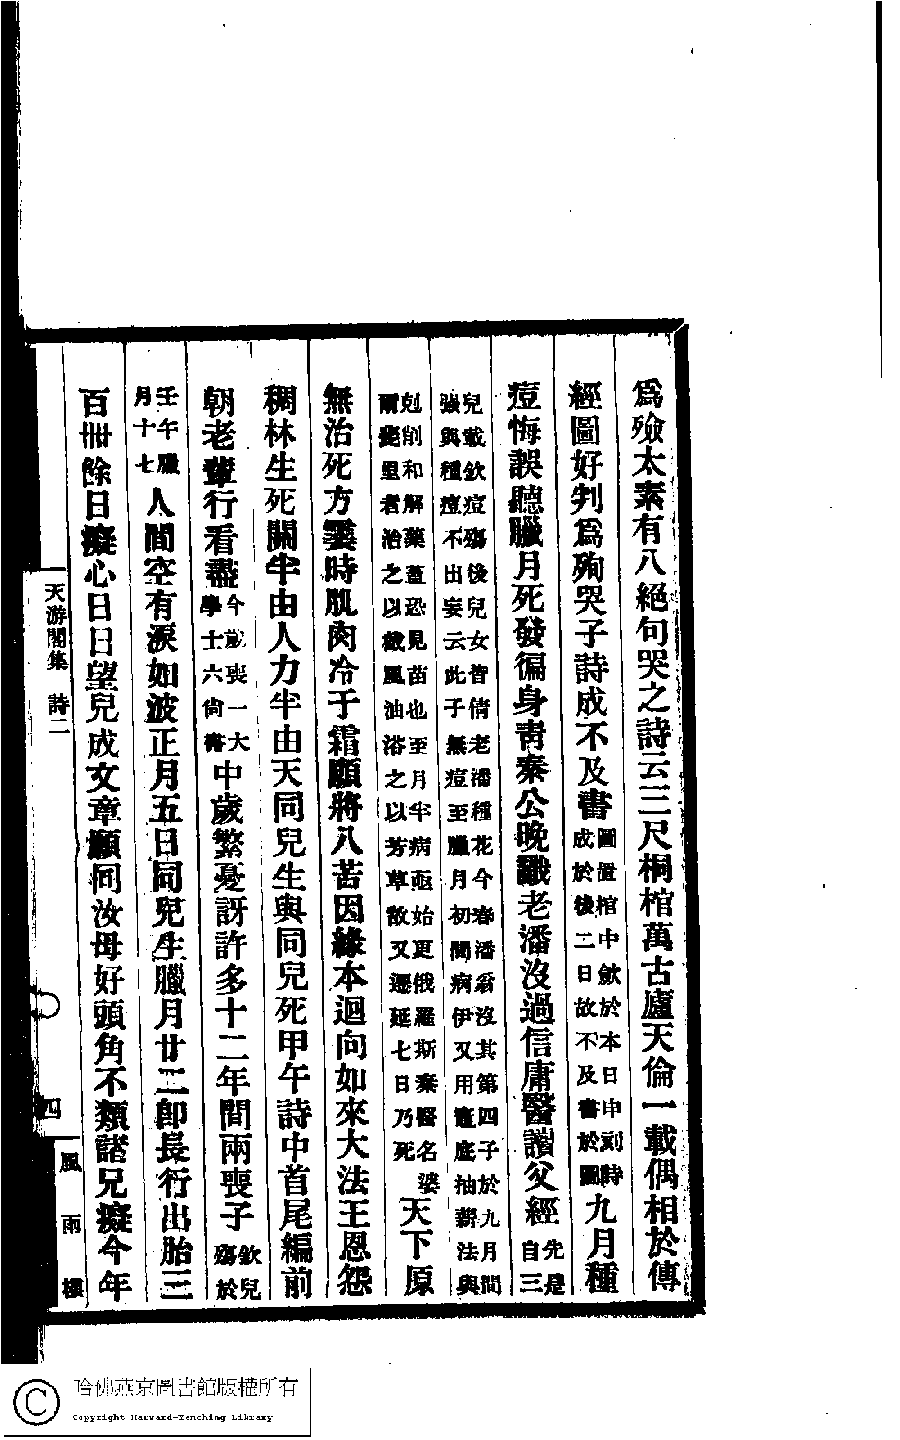 為殮太素有八絕句哭之詩云三尺桐棺萬古廬天倫一載偶相於傳
經圖好判為殉哭子詩成不及書圖置棺中歛於本日申刻詩成於後二日故不及書於圖九月種
痘悔誤聽臘月死發徧身青秦公晚讖老潘沒過信庸醫讀父經先是自三
兒載欽痘殤後兒女皆倩老潘種花今春潘翁沒其第四子於九月間
強與種痘不出妄云此子無痘至臘月初間病伊又用竈底抽薪法與
剋削和解藥蓋恐見苗也至月半病亟始更俄羅斯棄醫名婆
爾斐里者治之以檄風油浴之以芳草散又遷延七日乃死天下原
無治死方霎時肌肉冷于霜願將八苦因緣本迴向如來大法王恩怨
稠林生死關半由人力半由天同兒生與同兒死甲午詩中首尾編前
朝老輩行看盡今歲喪一大學士六尚書中歲繁憂訝許多十二年間兩喪子欽兒殤於
壬午臘月十七人間空有淚如波正月五日同兒生臘月廿二即長行出胎三
百卌餘日癡心日日望兒成文章願同汝母好頭角不類諸兄癡今年
天游閣集 詩二
四
風雨樓
哈佛燕京圖書館版權所有
Copyright Harvard-Yenching Library